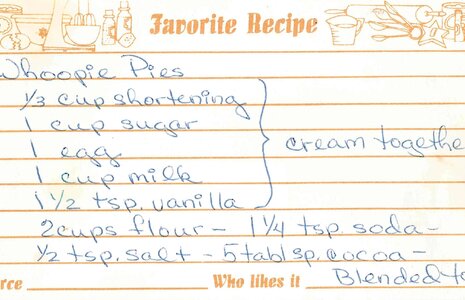 Favorite Recipe
Whoopie Pies
1/3 cup shortening
1 cup sugar
1 egg
1 cup milk
1 1/2 tsp. vanilla
cream togethe
2 cups flour - 1 1/4 tsp. soda -
1/2 tsp. salt - 5 tablsp. cocoa -
rce Who likes it Blended to